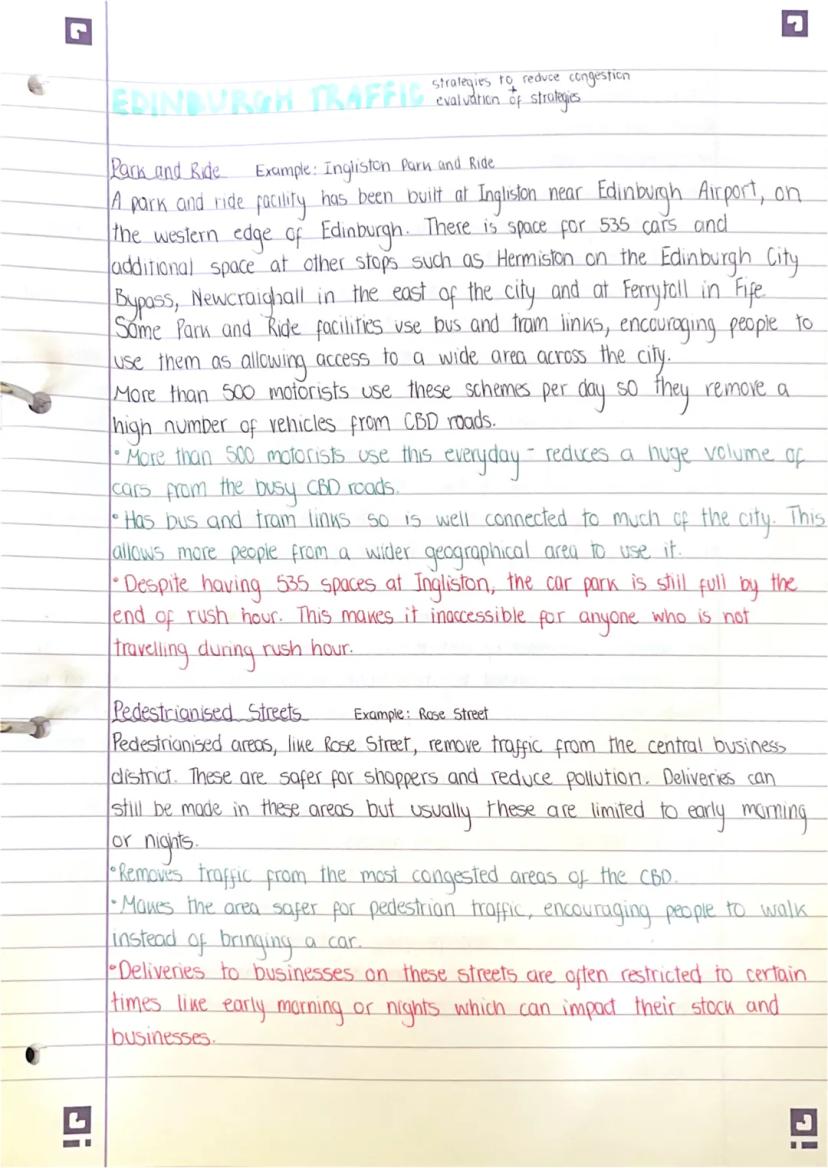 EDINBURGH TRAFFIC strategies to reduce congestion
+
evaluation of strategies
Park and Ride Example: Ingliston Park and Ride
A park and ride facility has been built at Ingliston near Edinburgh Airport, on
the western edge of Edinburgh. There is space for 535 cars and
additional space at other stops such as Hermiston on the Edinburgh City
Bypass, Newcraighall in the east of the city and at Ferrytoll in Fife.
Some Park and Ride facilities use bus and tram links, encouraging people to
use them as allowing access to a wide area across the city.
More than 500 motorists use these schemes per day so they remove a
high number of vehicles from CBD roads.
• More than 500 motorists use this everyday - reduces a huge volume of
cars from the busy CBD roads.
• Has bus and tram links so is well connected to much of the city. This
allows more people from a wider geographical area to use it.
• Despite having 535 spaces at Ingliston, the car park is still full by the
end of rush hour. This makes it inaccessible for anyone who is not
travelling during rush hour.
Pedestrianised Streets Example: Rose Street
Pedestrianised areas, like Rose Street, remove traffic from the central business
district. These are safer for shoppers and reduce pollution. Deliveries can
still be made in these areas but usually these are limited to early morning
or nights.
• Removes traffic from the most congested areas of the CBD.
• Makes the area safer for pedestrian traffic, encouraging people to walk
instead of bringing a car.
• Deliveries to businesses on these streets are often restricted to certain
times like early morning or nights which can impact their stock and
businesses.